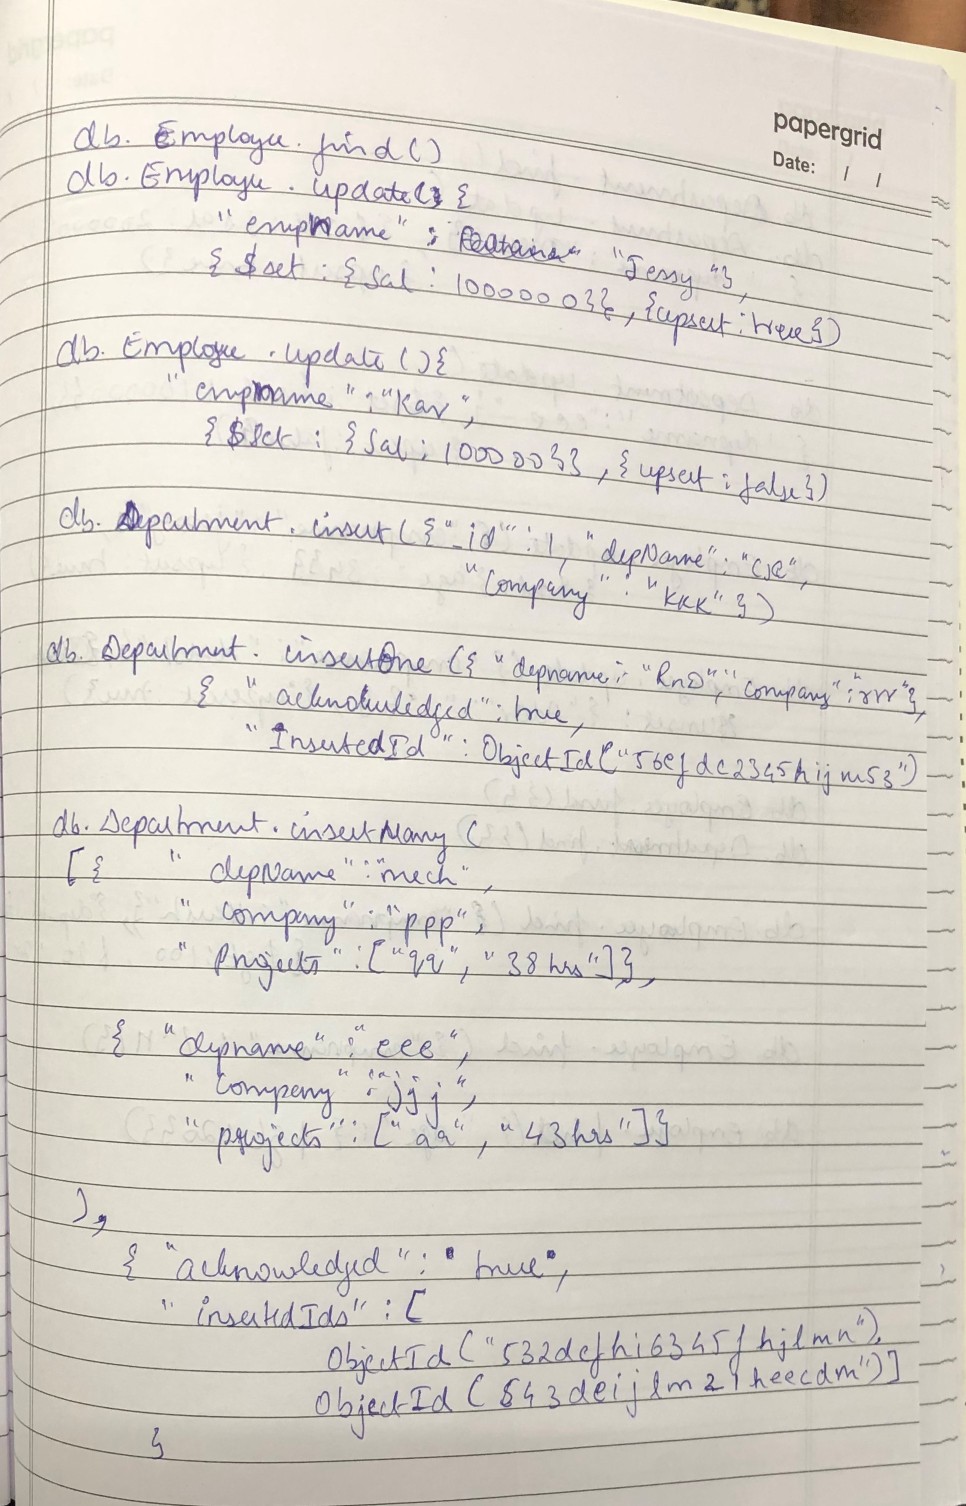 papergrid
Date: / /
db. Employee. find()
db. Employe. update(){
"empName" : "Jessy"},
{ $set : { Sal : 1000000}}, {upsert : true})
db. Employee . update (){
"empname" : "Kav",
{ $Set : { Sal : 100000}} , { upsert : false})
db. Department. insert ({ "_id" : 1, "depName" : "CSE",
"Company" : "KKK" })
db. Department. insertOne ({ "depname : "RnD", "company" : rrr"},
{ "acknowledged" : true,
"InsertedId" : ObjectId("56efdc2345hijm53")
db. Department. insertMany (
[{ "depName" : "mech",
"company" : "ppp",
"Projects" : ["qq", "38 hrs"]},
{ "depname" : "eee",
"Company" : "jjj",
"projects" : ["aa", "43hrs"]}
),
{ "acknowledged" : " true",
"insertedIds" : [
ObjectId ("532defhi6345fhjlmn"),
ObjectId (543deijlm21heecdm")]
}